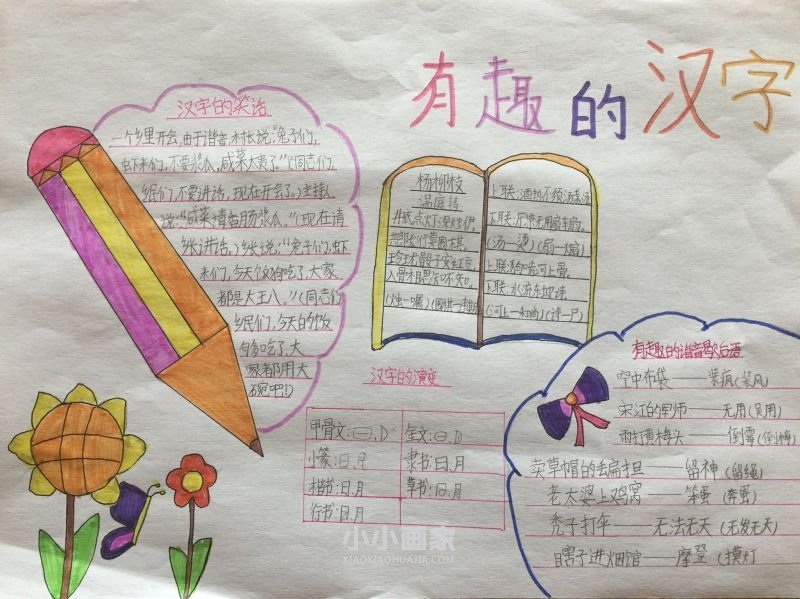 有趣的汉字
汉字的笑话
一个乡里开会,由于谐音,村长说:"兔子们,
虾米们,不要浆瓜,咸菜太贵了。"(同志们,
乡民们,不要讲话,现在开会了。)主持人
说:"咸菜请香肠浆瓜。"(现在请
乡长讲话。)乡长说:"兔子们,虾
米们,今天饭狗吃了,大家
都是大王八。"(同志们
乡民们,今天的饭
够吃了,大
家都用大
碗吧!)
杨柳枝
温庭筠
井底点灯深烛伊,
共郎长行莫围棋。
玲珑骰子安红豆,
入骨相思知不知。
上联:酒热不须汤盏汤
下联:厅凉无用扇车扇。
(汤—烫)(扇—扇)
上联:狗啃河上骨
下联:水流东坡诗
(河上—和尚)(诗—尸)
汉字的演变
甲骨文:
金文:
小篆:
隶书:日、月
楷书:日、月
草书:日、月
行书:日、月
有趣的谐音歇后语
空中布袋——装疯(装风)
宋江的军师——无用(吴用)
雨打黄梅头——倒霉(倒梅)
卖草帽的丢扁担——留神(留绳)
老太婆上鸡窝——笨蛋(奔蛋)
秃子打伞——无法无天(无发无天)
瞎子进烟馆——摩登(摸灯
小小画家
XIAOXIAOHUAJIA.COM